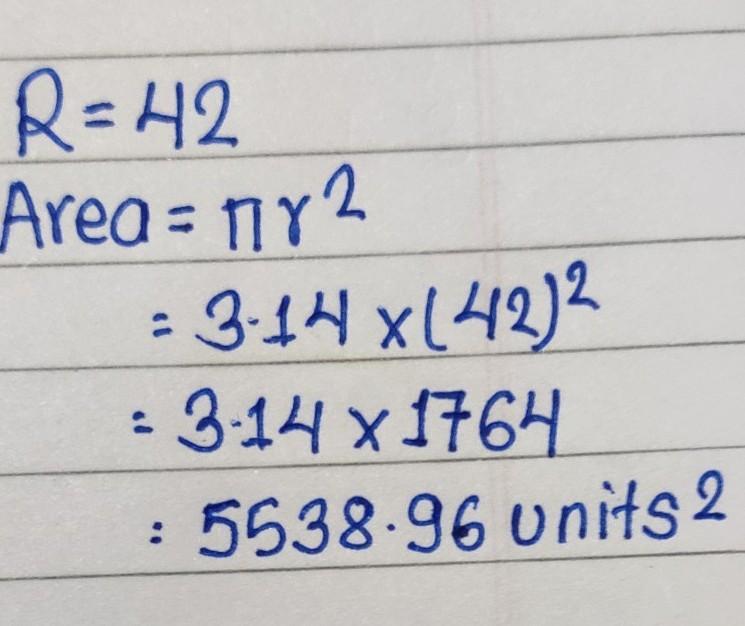 R = 42
Area = πr²
= 3.14 × (42)²
= 3.14 × 1764
= 5538.96 units²